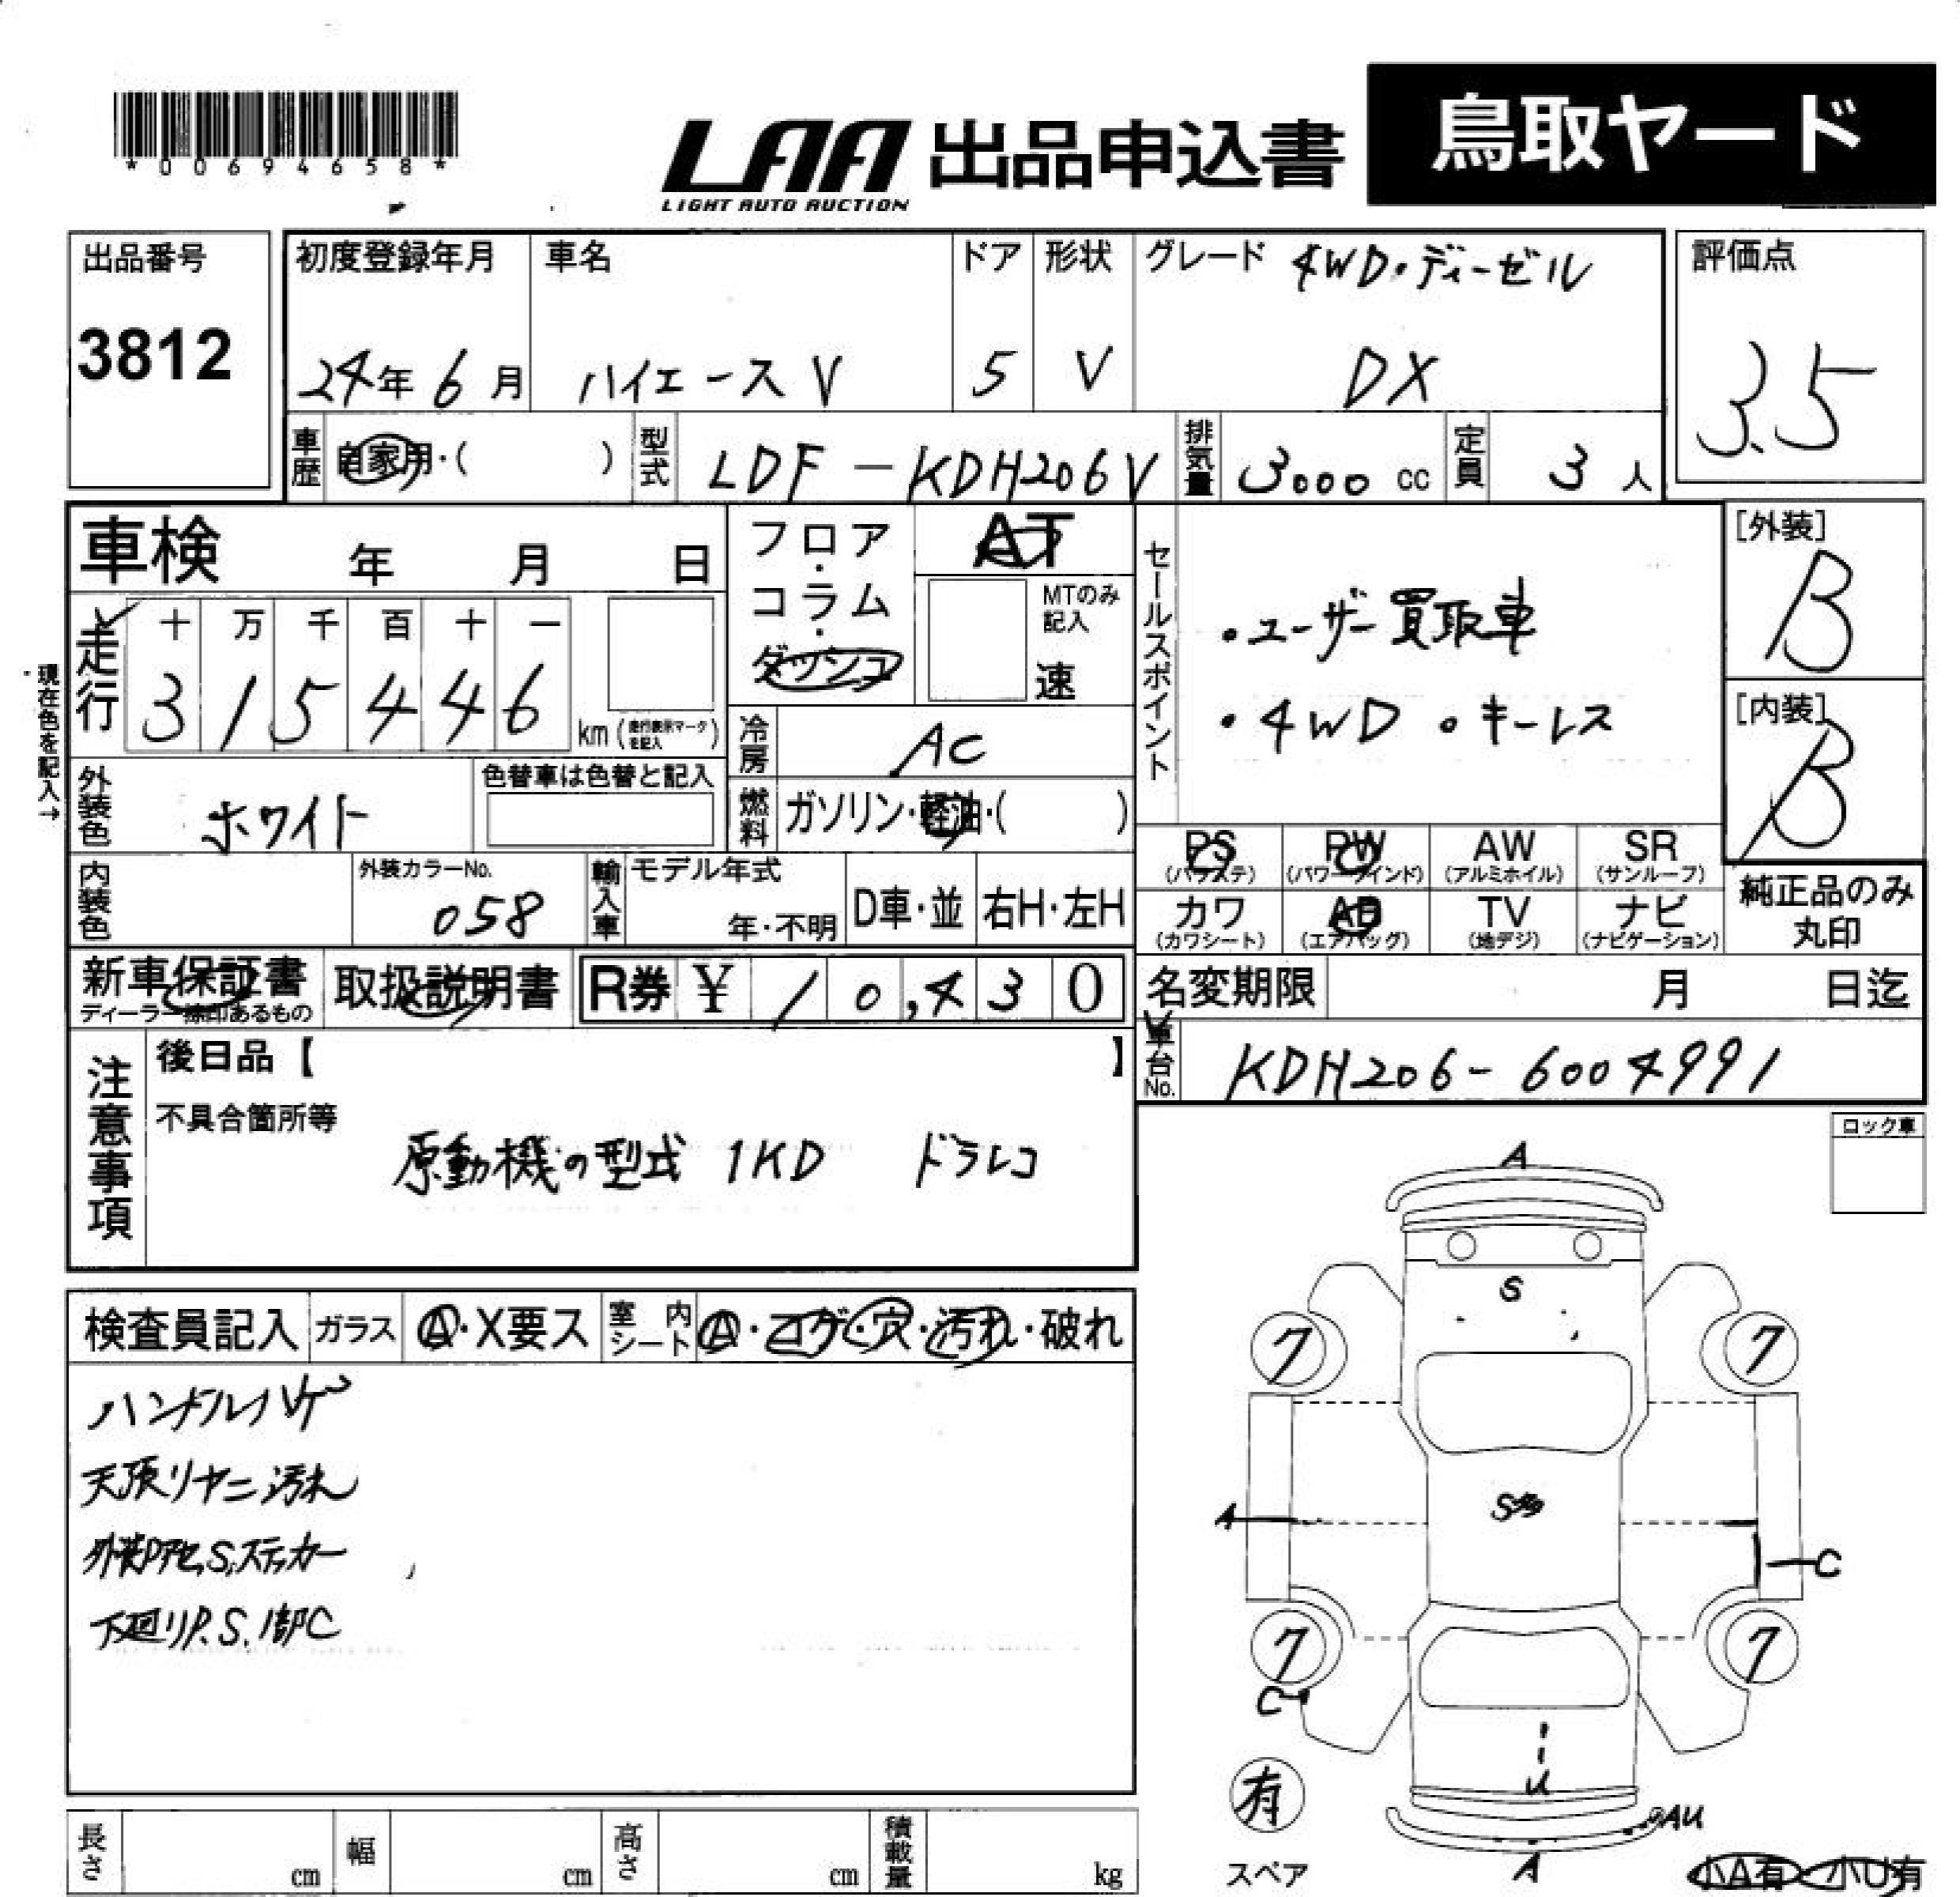 *00694658*
LAA 出品申込書 鳥取ヤード
LIGHT AUTO AUCTION
出品番号 初度登録年月 車名 ドア 形状 グレード 4WD・ディーゼル 評価点
3812 24年 6月 ハイエースV 5 V DX 3.5
車歴 自家用・( ) 型式 LDF-KDH206V 排気量 3000 cc 定員 3人
車検 年 月 日 フロア・コラム・ダッシュ AT
MTのみ記入 速
走行 十 万 千 百 十 一
3 1 5 4 4 6 km (走行表示マークを記入)
現在色を記入→
セールスポイント
・ユーザー買取車
・4WD ・キーレス
[外装] B
[内装] B
冷房 AC
外装色 ホワイト 色替車は色替と記入
燃料 ガソリン・軽油・( )
PS (パワステ) PW (パワーウインド) AW (アルミホイル) SR (サンルーフ)
カワ (カワシート) AB (エアバッグ) TV (地デジ) ナビ (ナビゲーション)
純正品のみ丸印
内装色 外装カラーNo. 058 輸入車 モデル年式 年・不明 D車・並 右H・左H
新車保証書 取扱説明書 R券 ¥ 10,430
ディーラー捺印あるもの
名変期限 月 日迄
車台No. KDH206-6004991
注意事項 後日品【 】
不具合箇所等
原動機の型式 1KD ドラレコ
ロック車
検査員記入 ガラス A・X要ス 室内シート A・コゲ・穴・汚れ・破れ
ハンドルハゲ
天張リヤニ汚れ
S,ステッカー
下廻リP.S.1部C
A
S
7 7
S多
A
C
7 7
C
U
AU
A
有
スペア
小A有・小U有
長さ cm 幅 cm 高さ cm 積載量 kg